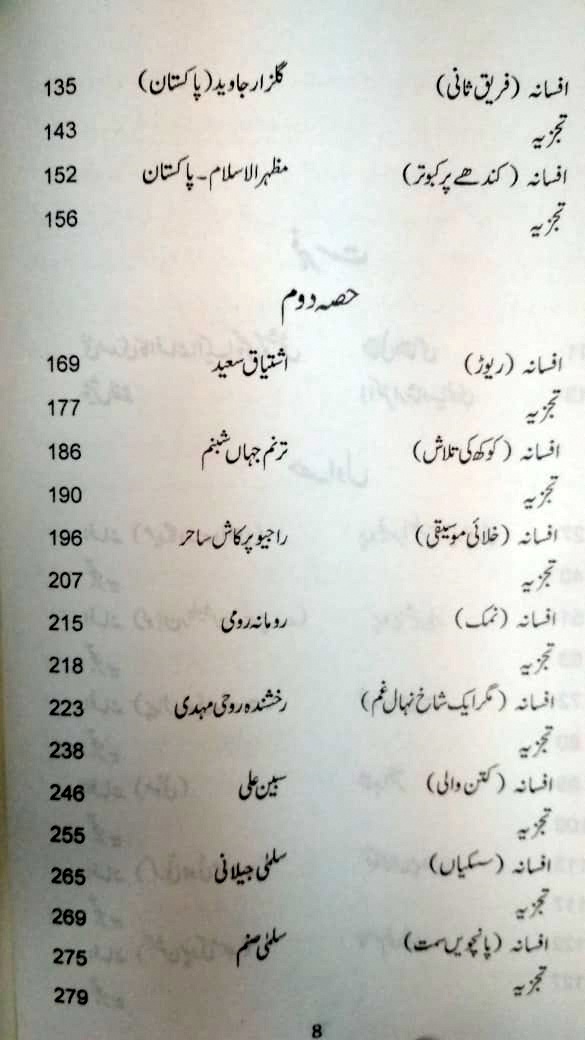 افسانہ (فریق ثانی) گلزار جاوید (پاکستان) 135
تجزیہ 143
افسانہ (کندھے پر کبوتر) مظہر الاسلام۔ پاکستان 152
تجزیہ 156
حصہ دوم
افسانہ (ریوڑ) اشتیاق سعید 169
تجزیہ 177
افسانہ (کوکھ کی تلاش) ترنم جہاں شبنم 186
تجزیہ 190
افسانہ (خلائی موسیقی) راجیو پرکاش ساحر 196
تجزیہ 207
افسانہ (نمک) رومانہ رومی 215
تجزیہ 218
افسانہ (مگر ایک شاخ نہال غم) رخشندہ روحی مہدی 223
تجزیہ 238
افسانہ (کتن والی) سبین علی 246
تجزیہ 255
افسانہ (سسکیاں) سلمیٰ جیلانی 265
تجزیہ 269
افسانہ (پانچویں سمت) سلمیٰ صنم 275
تجزیہ 279
8